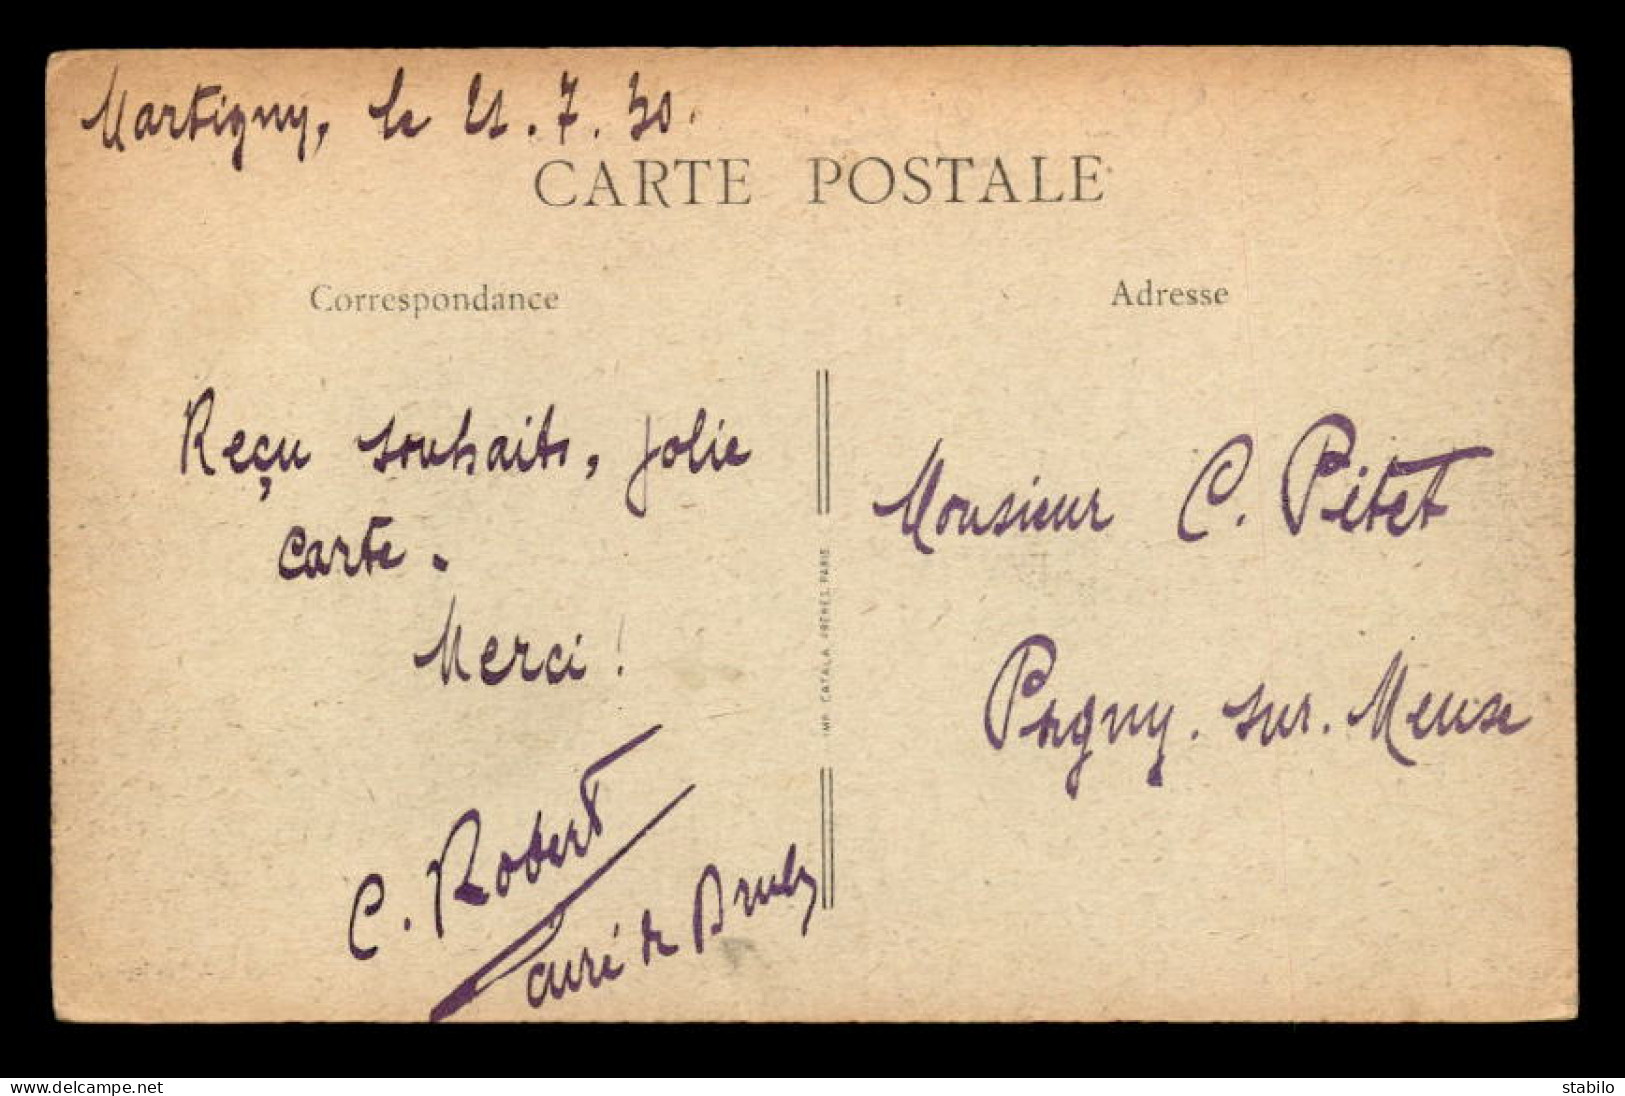 Martigny, le 21.7.30.
CARTE POSTALE
Correspondance
Reçu souhaits, jolie
carte.
Merci !
C. Robert
curé de Bruley
IMP. CATALA FRERES, PARIS
Adresse
Monsieur C. Pitet
Pagny. sur. Meuse
www.delcampe.net
stabilo